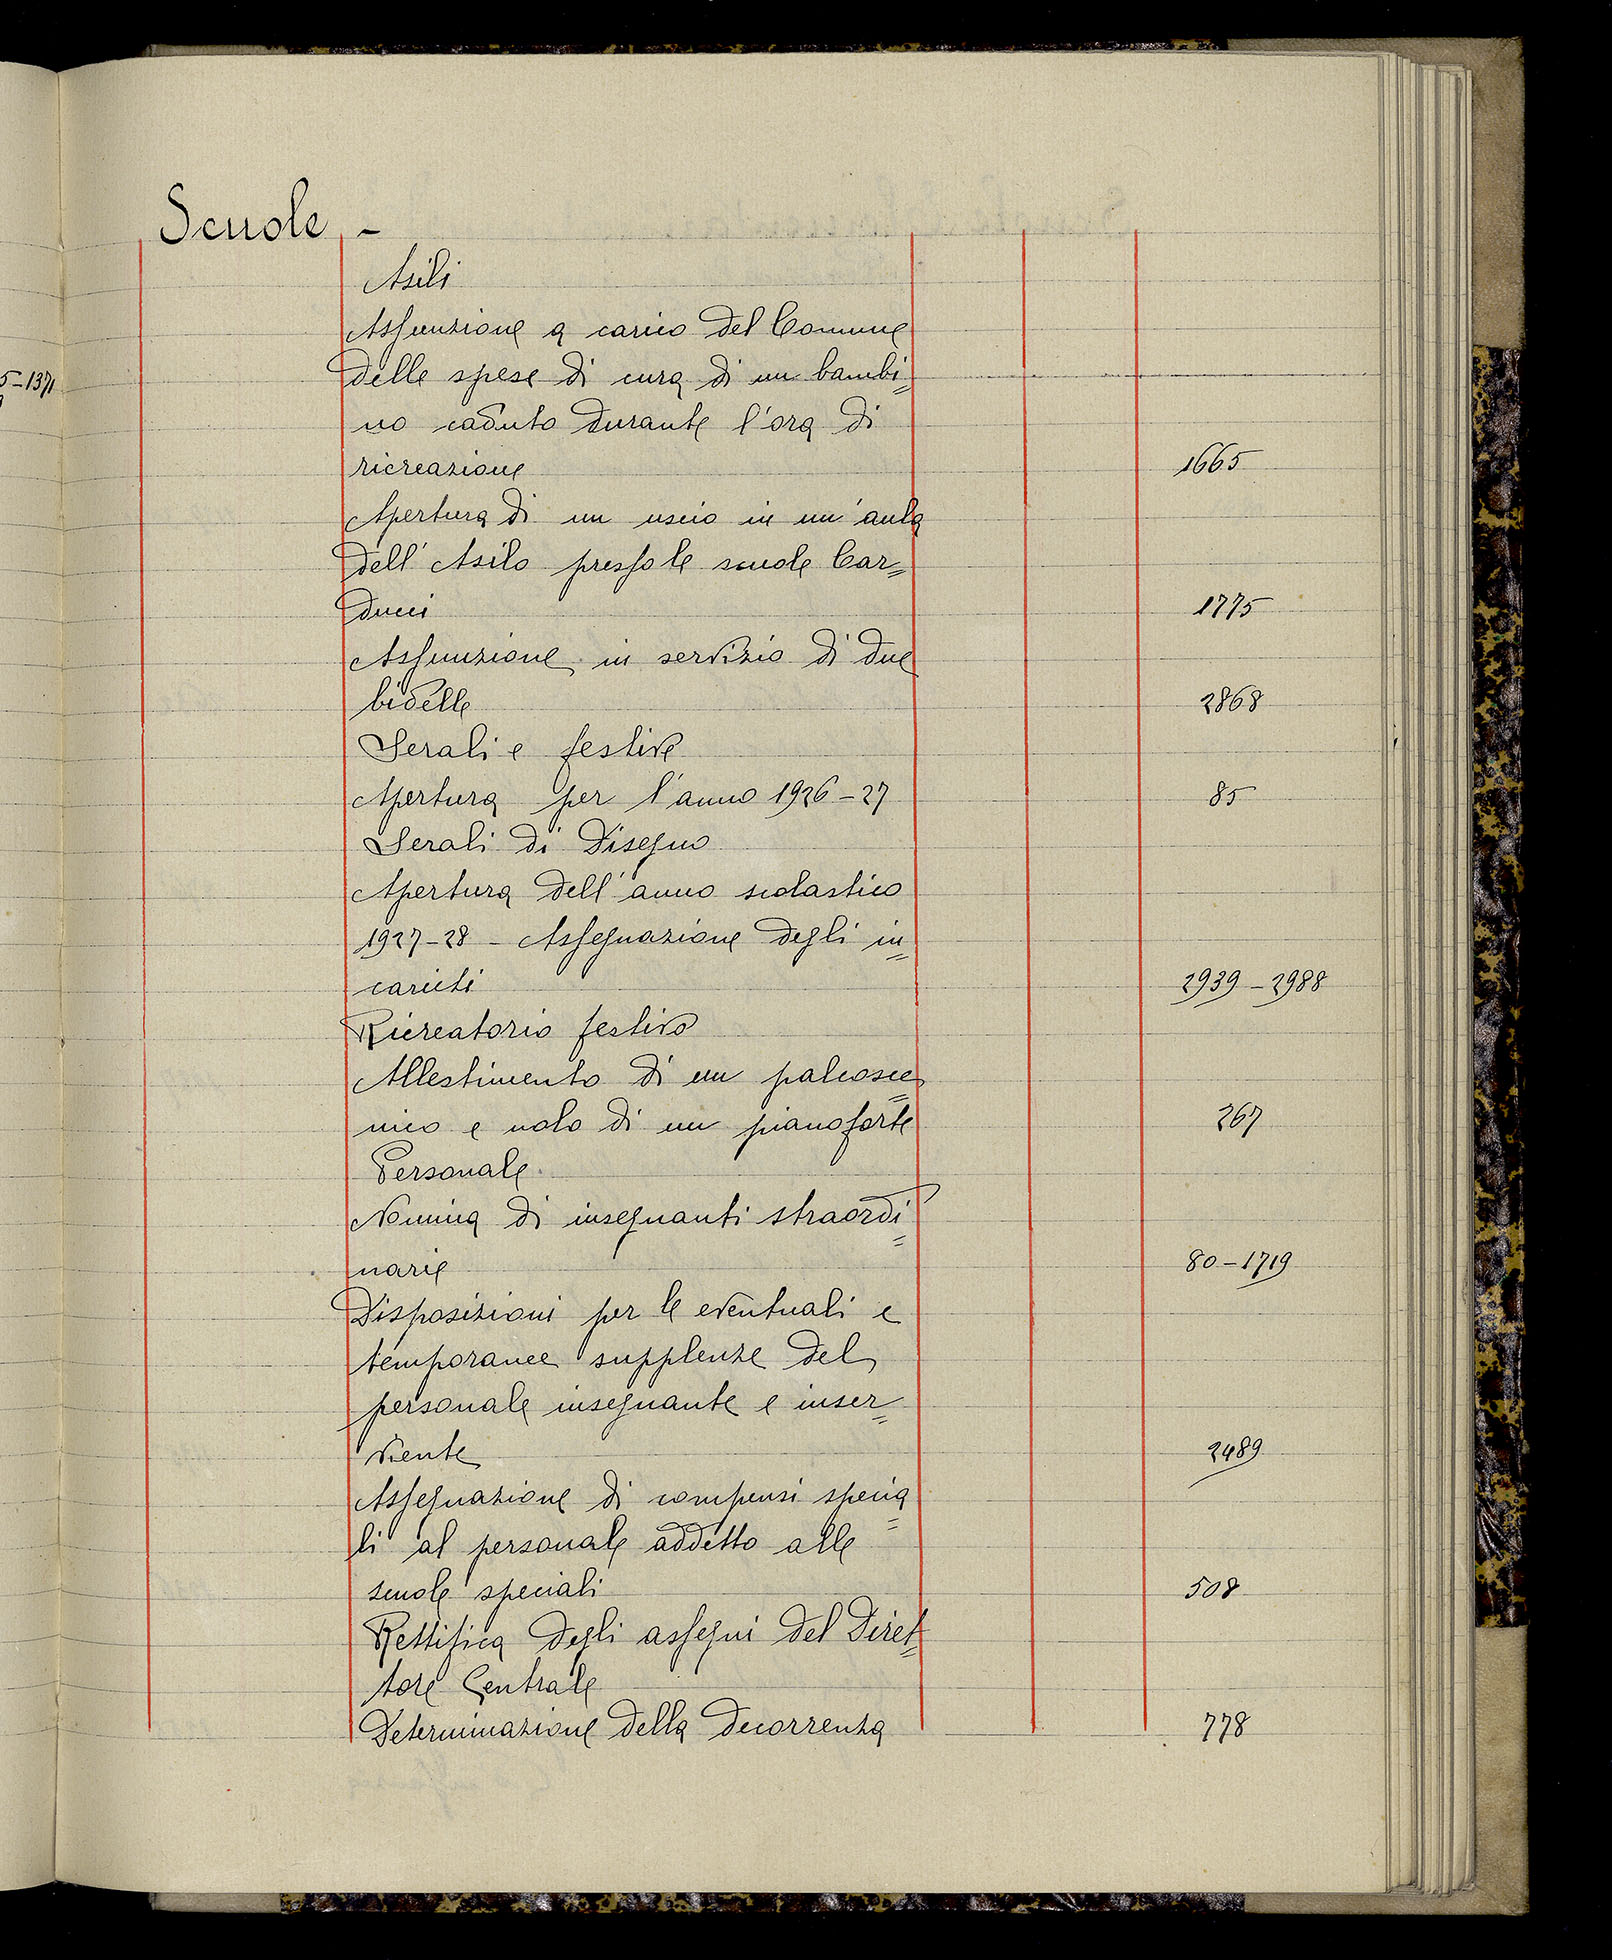 Scuole -
Asili
Assunzione a carico del Comune
delle spese di cura di un bambi=
no caduto durante l'ora di
ricreazione 1665
Apertura di un uscio in un'aula
dell'Asilo presso le scuole Car=
ducci 1775
Assunzione in servizio di due
bidelle 2868
Serali e festive
Apertura per l'anno 1926-27 85
Serali di Disegno
Apertura dell'anno scolastico
1927-28 - Assegnazione degli in=
carichi 2939-2988
Ricreatorio festivo
Allestimento di un palcosce=
nico e nolo di un pianoforte 267
Personale
Nomina di insegnanti straordi=
narie 80-1719
Disposizioni per le eventuali e
temporanee supplenze del
personale insegnante e inser=
viente 2489
Assegnazione di compensi specia=
li al personale addetto alle
scuole speciali 508
Rettifica degli assegni del Diret=
tore Centrale
Determinazione della decorrenza 778
5-1371